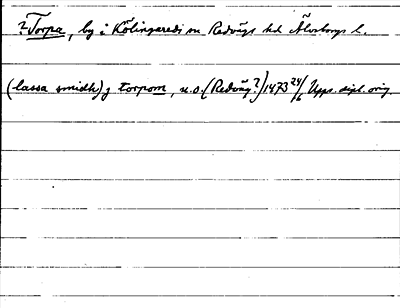 ? Torpa, by i Kölingareds sn Redvägs hd Älvsborgs l.
(lassa smidh) j torpom, u.o. (Redväg?) 1473 24/6 Upps. dipl. orig.